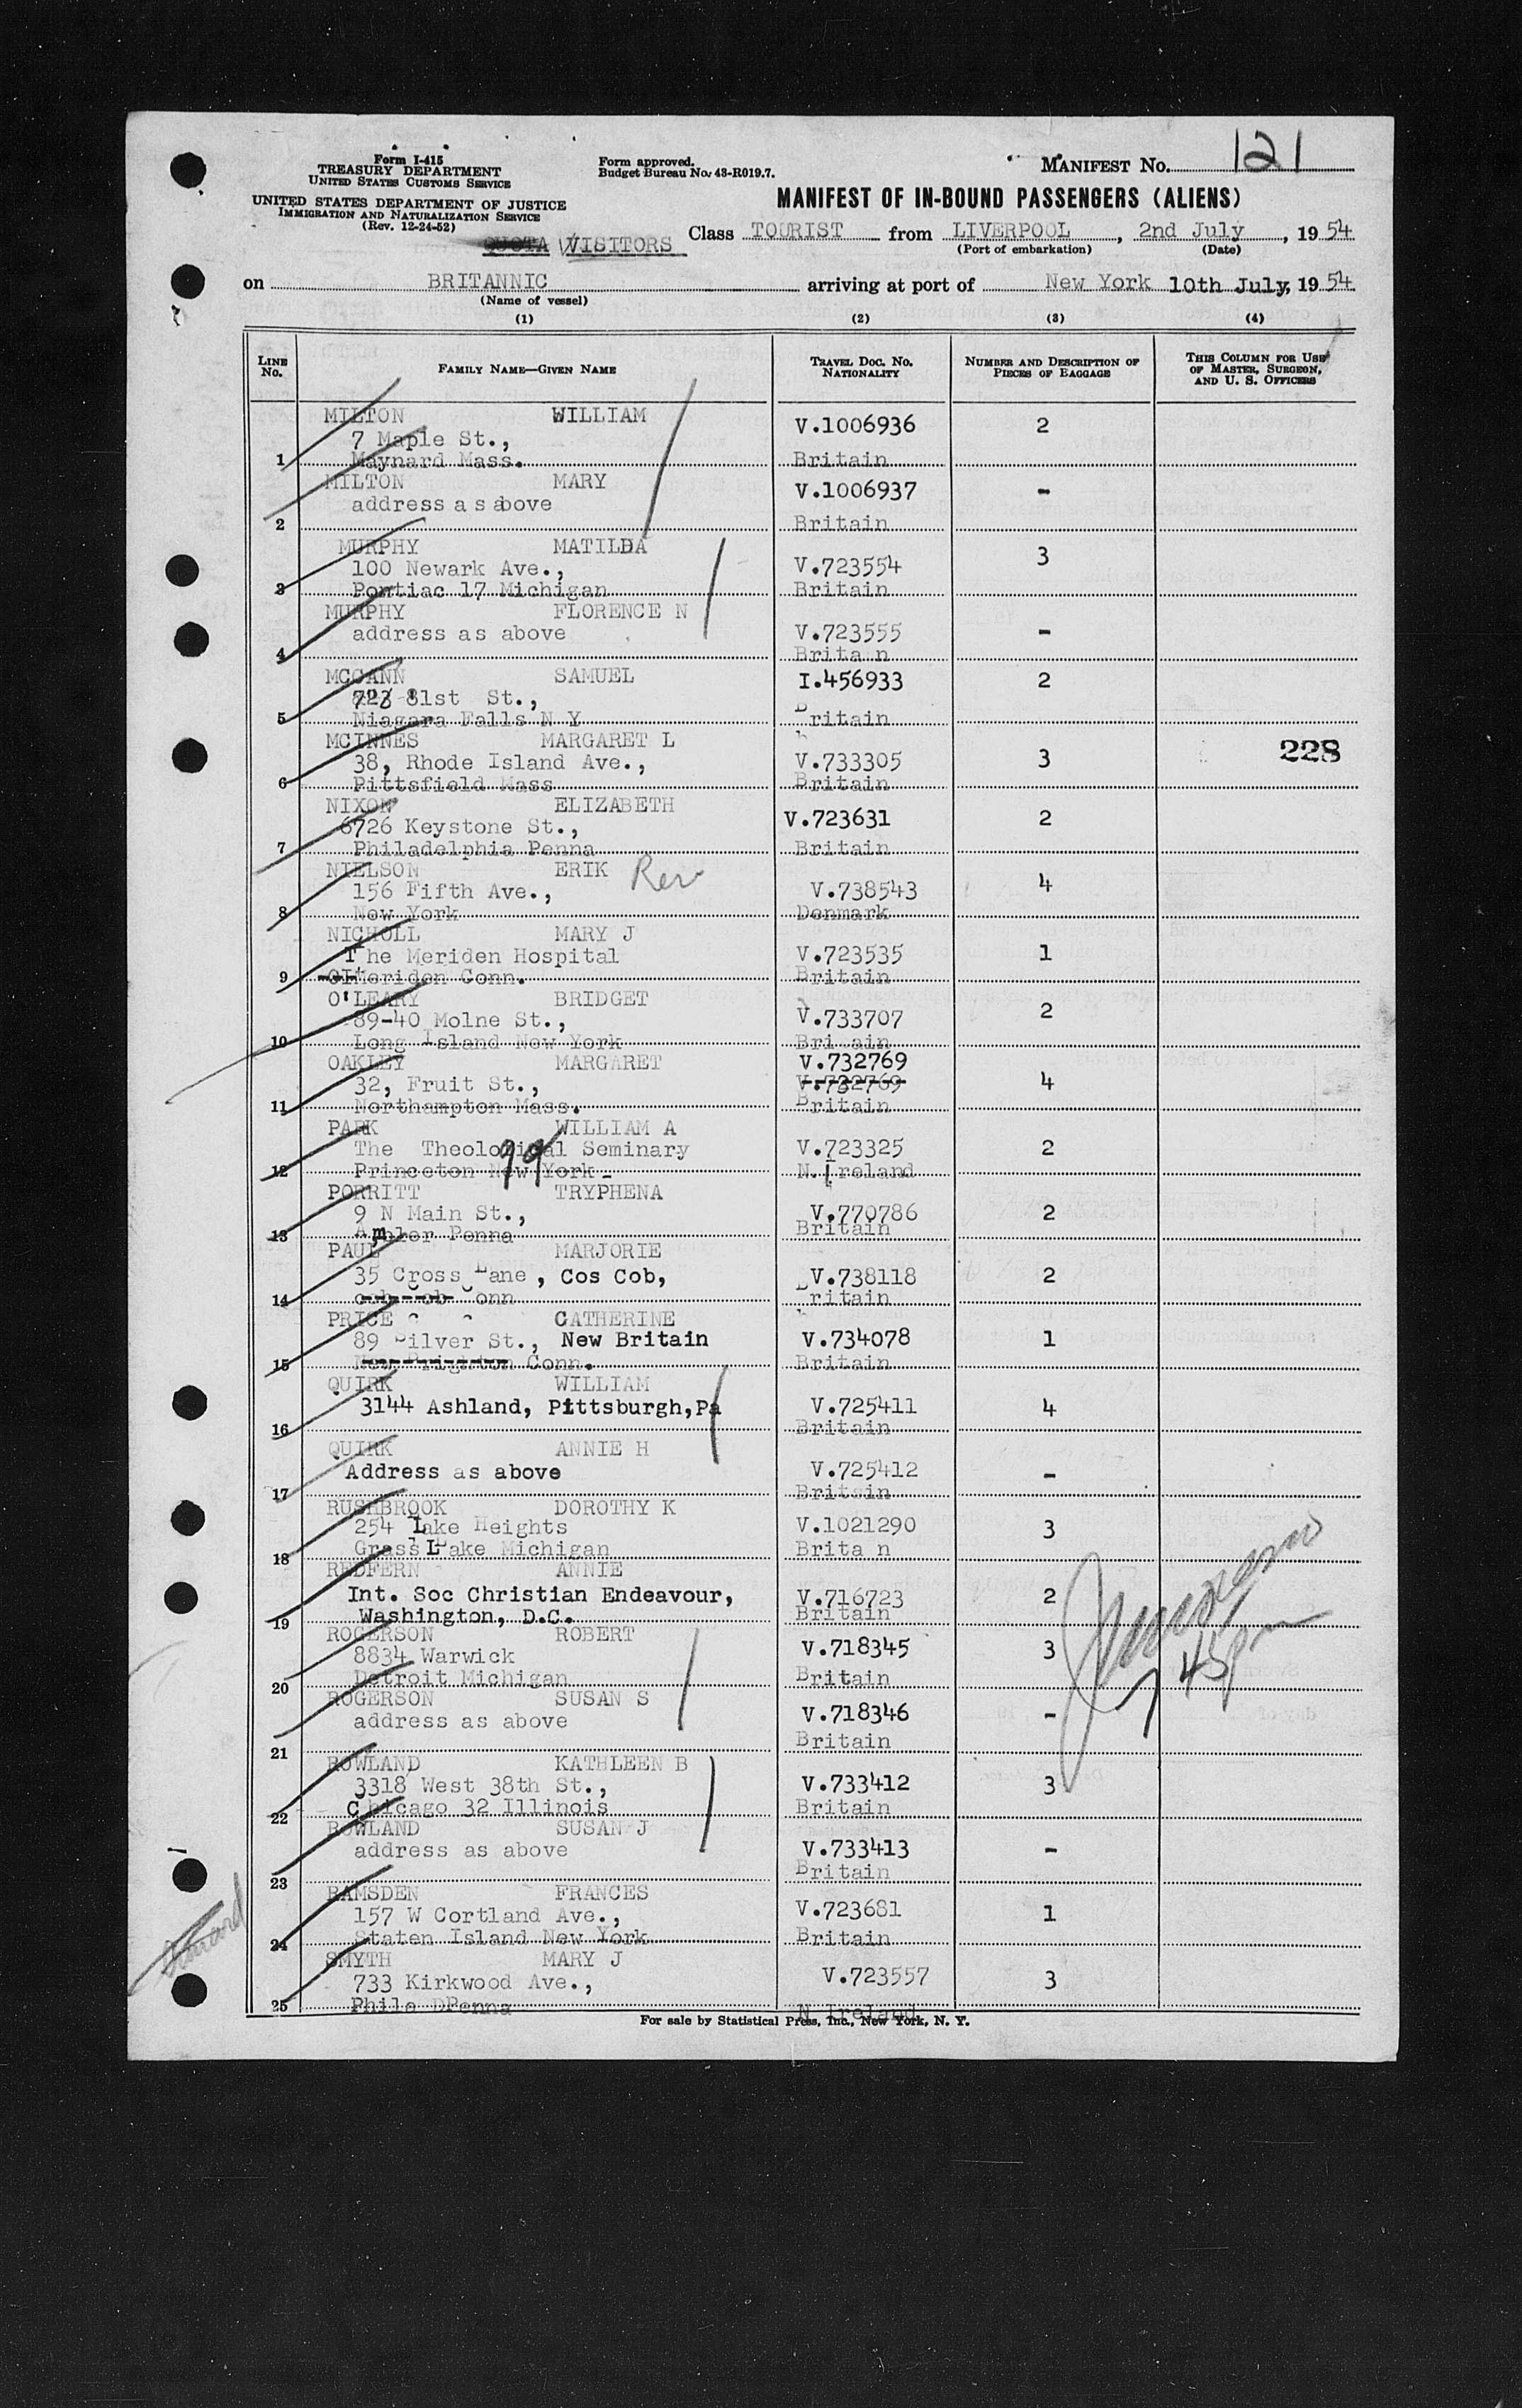 Form I-415
TREASURY DEPARTMENT
UNITED STATES CUSTOMS SERVICE
UNITED STATES DEPARTMENT OF JUSTICE
IMMIGRATION AND NATURALIZATION SERVICE
(Rev. 12-24-52)
Form approved.
Budget Bureau No. 43-R019.7.
MANIFEST No. 121
MANIFEST OF IN-BOUND PASSENGERS (ALIENS)
QUOTA VISITORS Class TOURIST from LIVERPOOL, 2nd July, 1954
(Port of embarkation) (Date)
on BRITANNIC arriving at port of New York 10th July, 1954
(Name of vessel)
(1) (2) (3) (4)
LINE No. FAMILY NAME—GIVEN NAME TRAVEL DOC. No. NATIONALITY NUMBER AND DESCRIPTION OF PIECES OF BAGGAGE THIS COLUMN FOR USE OF MASTER, SURGEON, AND U. S. OFFICERS
MILTON WILLIAM V.1006936 2
7 Maple St.,
1 Maynard Mass. Britain
MILTON MARY V.1006937 -
address as above
2 Britain
MURPHY MATILDA 3
100 Newark Ave., V.723554
3 Pontiac 17 Michigan Britain
MURPHY FLORENCE N
address as above V.723555 -
4 Brita n
MCCANN SAMUEL I.456933 2
723 81st St.,
5 Niagara Falls N Y Britain
MCINNES MARGARET L
38, Rhode Island Ave., V.733305 3 228
6 Pittsfield Mass Britain
NIXON ELIZABETH V.723631 2
6726 Keystone St.,
7 Philadelphia Penna Britain
NIELSON ERIK Rev
156 Fifth Ave., V.738543 4
8 New York Denmark
NICHOLL MARY J
The Meriden Hospital V.723535 1
9 Meriden Conn. Britain
O'LEARY BRIDGET 2
89-40 Molne St., V.733707
10 Long Island New York Bri ain
OAKLEY MARGARET V.732769
32, Fruit St., V.732769 4
11 Northampton Mass. Britain
PARK WILLIAM A
The Theological Seminary V.723325 2
12 Princeton New York N. Ireland
PORRITT TRYPHENA
9 N Main St., V.770786 2
13 Ambler Penna Britain
PAUL MARJORIE
35 Cross Lane, Cos Cob, V.738118 2
14 cob Cob Conn Britain
PRICE CATHERINE
89 Silver St., New Britain V.734078 1
15 New Brighton Conn. Britain
QUIRK WILLIAM
3144 Ashland, Pittsburgh,Pa V.725411 4
16 Britain
QUIRK ANNIE H
Address as above V.725412 -
17 Britain
RUSHBROOK DOROTHY K
254 Lake Heights V.1021290 3
18 Grass Lake Michigan Brita n
REDFERN ANNIE
Int. Soc Christian Endeavour, V.716723 2
19 Washington, D.C. Britain
ROGERSON ROBERT V.718345 3
8834 Warwick
20 Detroit Michigan Britain
ROGERSON SUSAN S
address as above V.718346 -
21 Britain
7 45 pm
ROWLAND KATHLEEN B
3318 West 38th St., V.733412 3
22 Chicago 32 Illinois Britain
ROWLAND SUSAN J
address as above V.733413 -
23 Britain
RAMSDEN FRANCES
157 W Cortland Ave., V.723681 1
24 Staten Island New York Britain
SMYTH MARY J
733 Kirkwood Ave., V.723557 3
25 Phila DPenna N Ireland
For sale by Statistical Press, Inc., New York, N. Y.